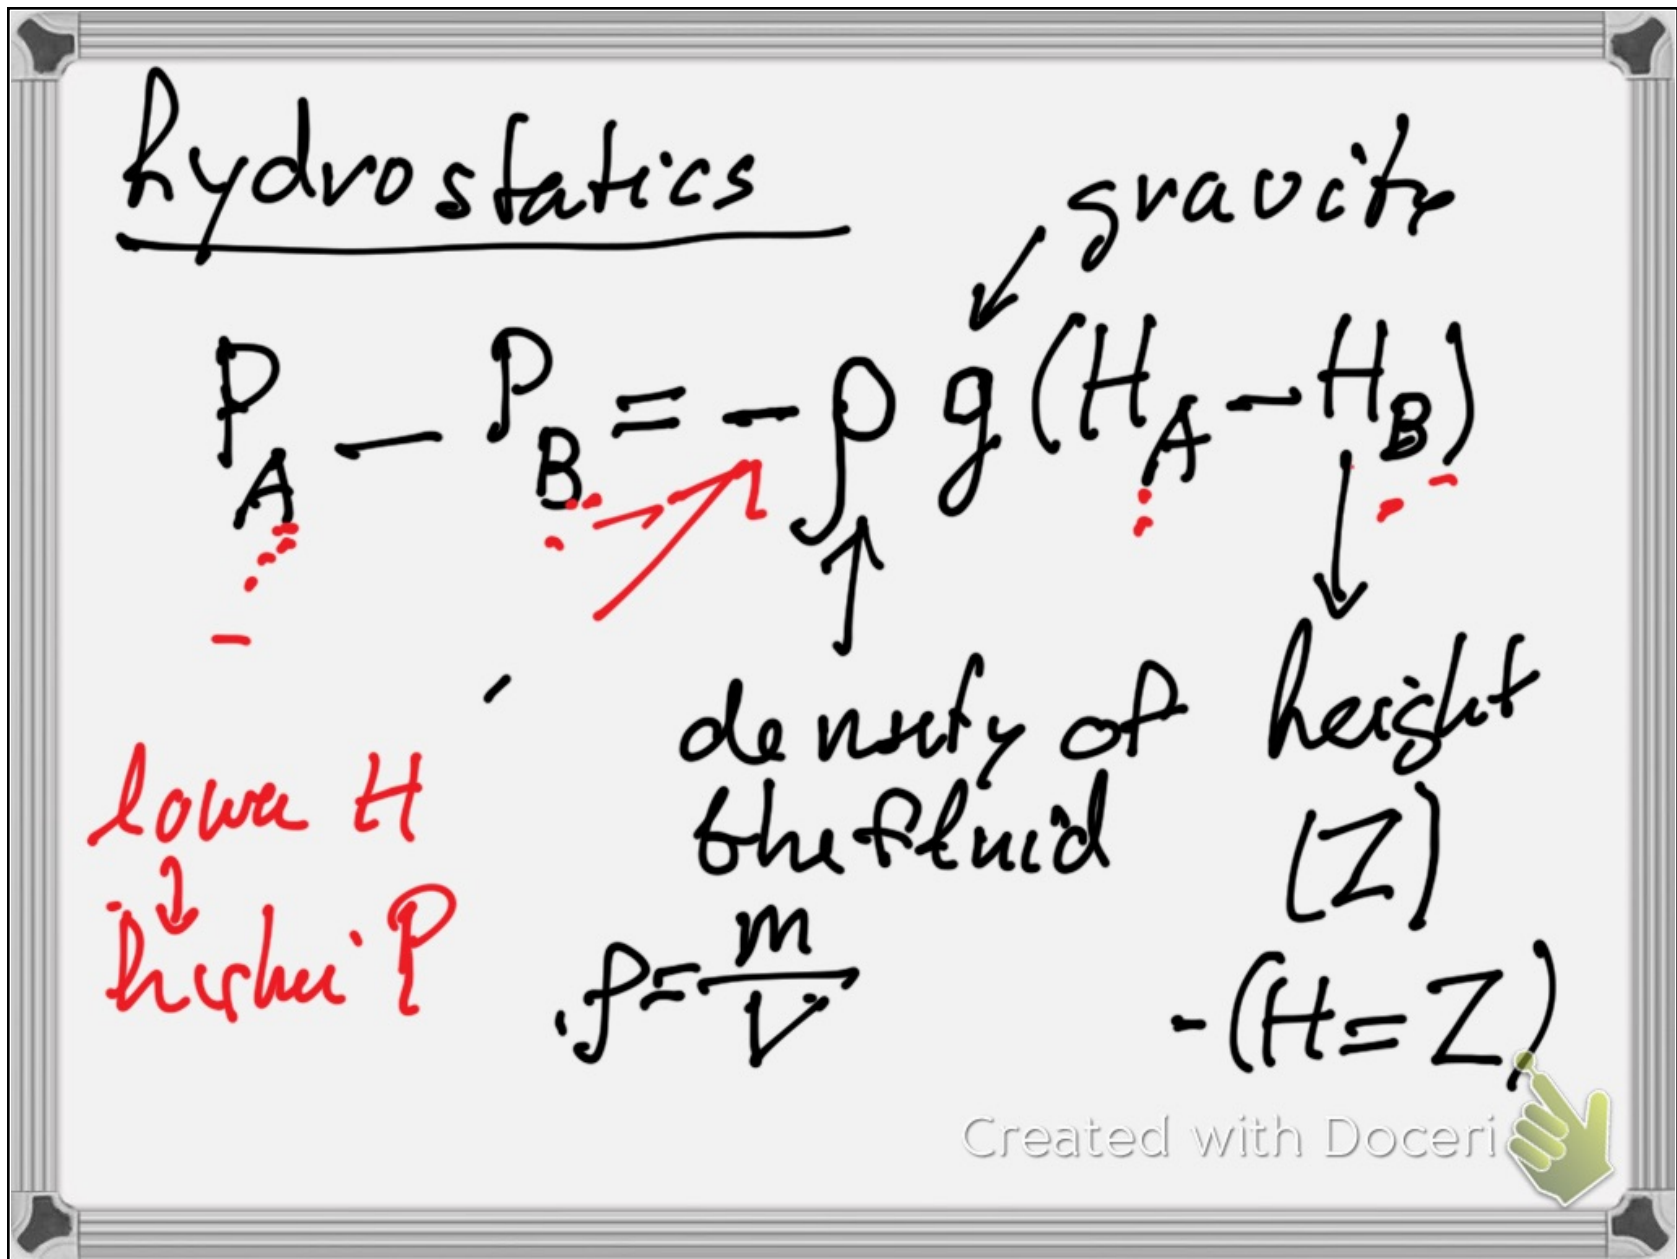 hydrostatics
gravity
P_A - P_B = - ρ g (H_A - H_B)
density of
the fluid
height
(Z)
lower H
higher P
ρ = m/V
- (H = Z)
Created with Doceri